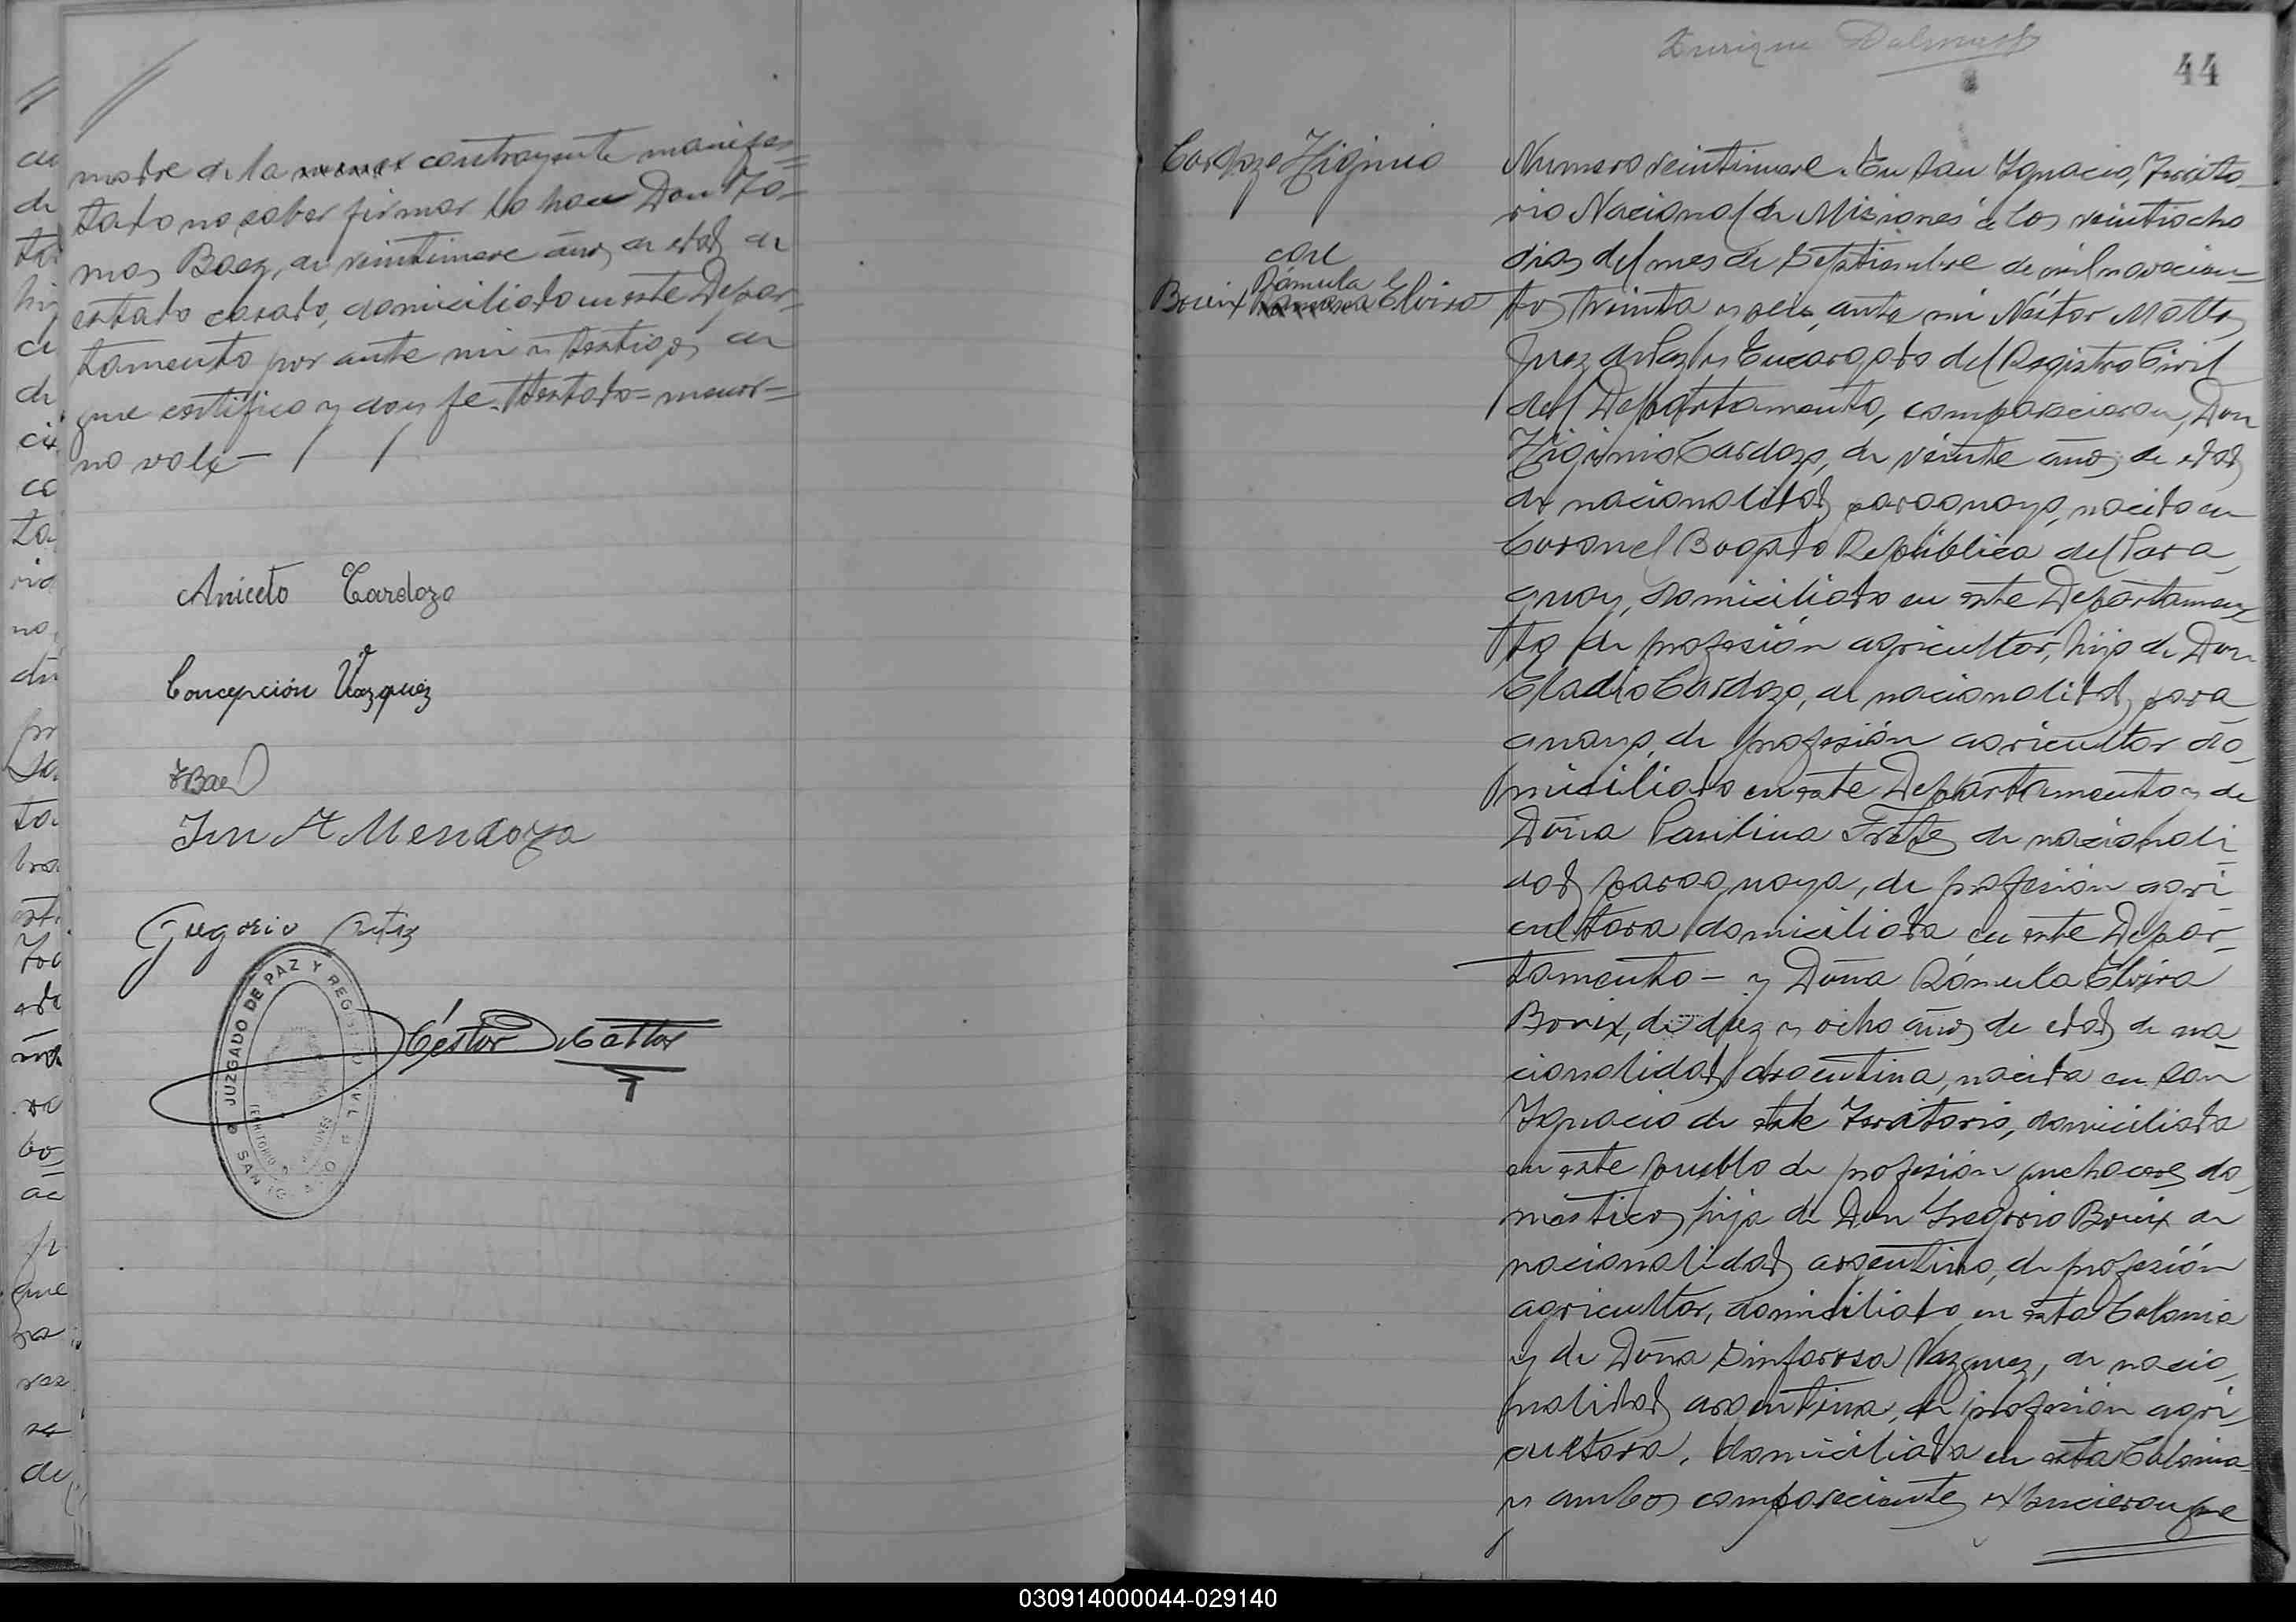 madre de la menor contrayente manifes=
tado no saber firmar lo hace Don To-
mas Baez, de veintinueve años de edad de
estado casado, domiciliado en este Depar-
tamento por ante mi y testigos de
que certifico y doy fe. Testado=menor=
no vale-
Aniceto Cardozo
Concepción Vazquez
TBaez
Jun A Mendoza
Gregorio
JUZGADO DE PAZ Y REGISTRO CIVIL
SAN IGNACIO
TERRITORIO MISIONES
Néstor Mattos
Enrique
44
Cardozo Higinio
con
Rómula
Bouix Ramona Elvira
Numero veintinueve. En San Ignacio, Territo-
rio Nacional de Misiones á los veintiocho
dias del mes de Septiembre de mil novecien-
tos treinta y seis, ante mi Néstor Mattos
Juez de Paz y Encargado del Registro Civil
del Departamento, comparecieron, Don
Higinio Cardozo, de veinte años de edad
de nacionalidad paraguayo, nacido en
Coronel Bogado República del Para-
guay, domiciliado en este Departamen-
to de profesión agricultor, hijo de Don
Eladio Cardozo, de nacionalidad para-
guayo, de profesión agricultor do-
miciliado en este Departamento y de
Doña Paulina Fretes de nacionali-
dad paraguaya, de profesión agri-
cultora domiciliada en este Depar-
tamento- y Doña Rómula Elvira
Bouix, de diez y ocho años de edad de na-
cionalidad argentina, nacida en San
Ignacio de este Territorio, domiciliada
en este pueblo de profesión quehaceres do-
mésticos hija de Don Gregorio Bouix de
nacionalidad argentino, de profesión
agricultor, domiciliado en esta Colonia
y de Doña Sinforosa Vazquez, de nacio-
nalidad argentina, de profesión agri-
cultora, domiciliada en esta Colonia
y ambos compareciente expusieron que
030914000044-029140